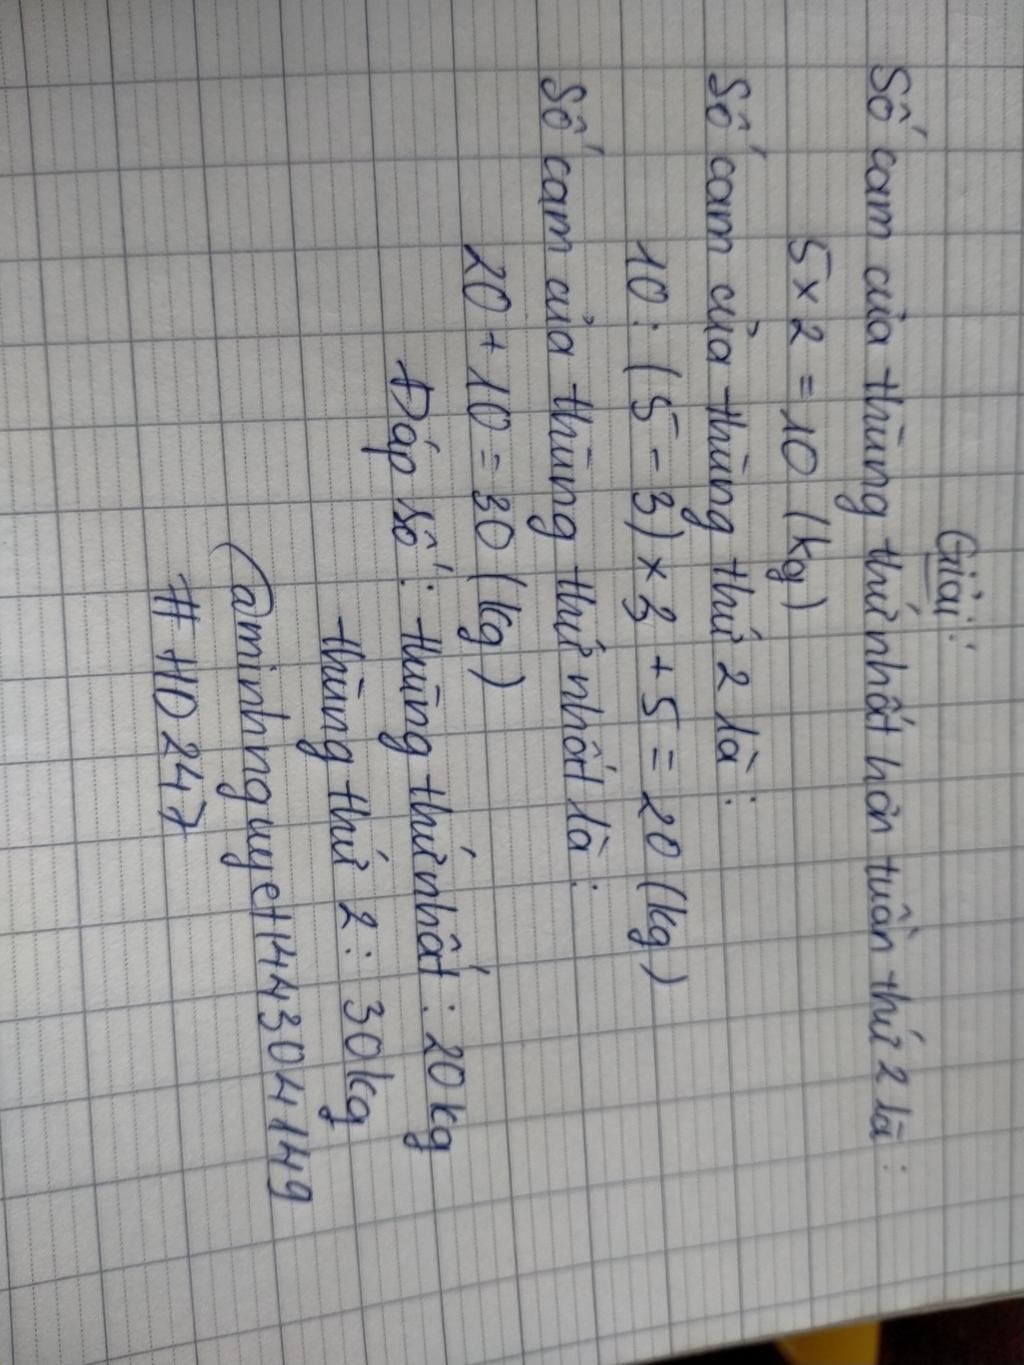 Giải:
Số cam của thùng thứ nhất hơn tuần thứ 2 là:
5 × 2 = 10 (kg)
Số cam của thùng thứ 2 là:
10 : (5 - 3) × 3 + 5 = 20 (kg)
Số cam của thùng thứ nhất là:
20 + 10 = 30 (kg)
Đáp số: thùng thứ nhất: 20kg
thùng thứ 2: 30kg
@minhnguyet144304149
# HD 247